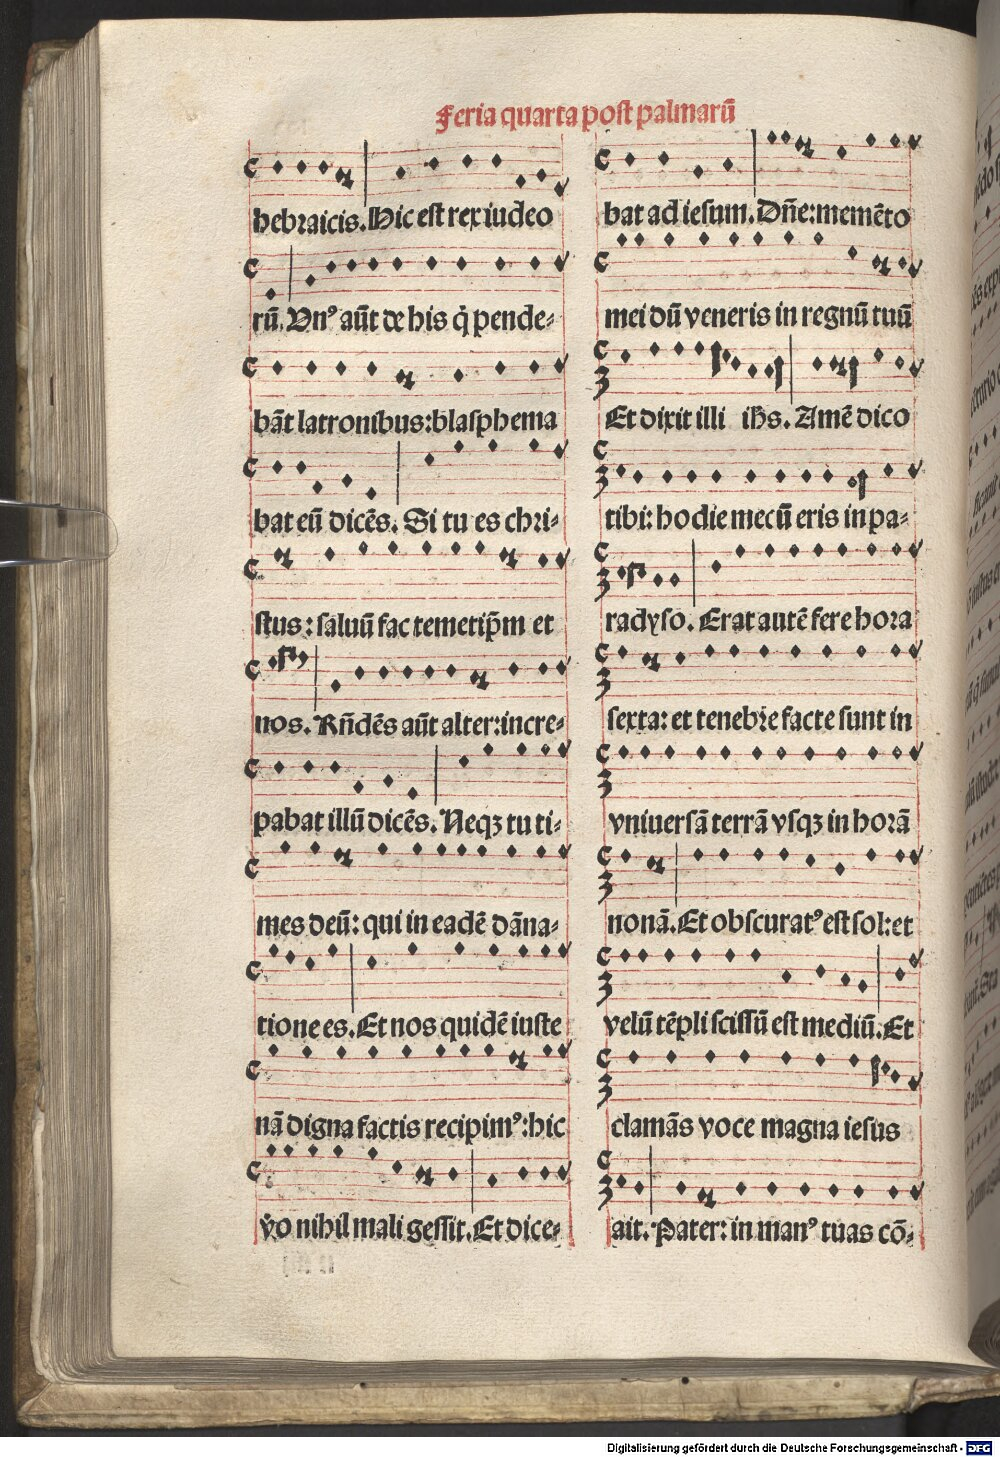 Feria quarta post palmarū
hebraicis. Hic est rex iudeo
rū. Vnꝰ aūt de his q̇ pende-
bāt latronibus: blasphema
bat eū dicēs. Si tu es chri-
stus: saluū fac temetip̄m et
nos. Rn̄dēs aūt alter: incre-
pabat illū dicēs. Neqꝫ tu ti-
mes deū: qui in eadē dāna-
tione es. Et nos quidē iuste
nā digna factis recipimꝰ: hic
v̊o nihil mali gessit. Et dice-
bat ad iesum. Dn̄e: memēto
mei dū veneris in regnū tuū
Et dixit illi ih̄s. Amē dico
tibi: hodie mecū eris in pa-
radyso. Erat autē fere hora
sexta: et tenebre facte sunt in
vniuersā terrā vsqꝫ in horā
nonā. Et obscuratꝰ est sol: et
velū tēpli scissū est mediū. Et
clamās voce magna iesus
ait. Pater: in manꝰ tuas cō-
Digitalisierung gefördert durch die Deutsche Forschungsgemeinschaft - DFG